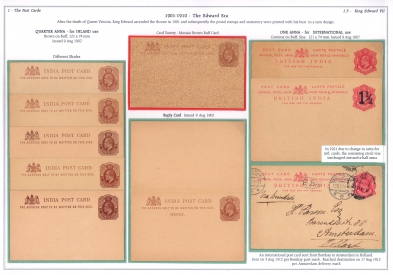 1 - The Post Cards
1.3 - King Edward VII
1902-1910 - The Edward Era
After the death of Queen Victoria, King Edward ascended the throne in 1901 and subsequently the postal stamps and stationery were printed with his bust in a new design.
QUARTER ANNA - for INLAND use
Brown on Buff. 121 x 74 mm
Issued 9 Aug 1902
Different Shades
INDIA POST CARD
THE ADDRESS ONLY TO BE WRITTEN ON THIS SIDE.
INDIA POST CARD
THE ADDRESS ONLY TO BE WRITTEN ON THIS SIDE.
INDIA POST CARD
THE ADDRESS ONLY TO BE WRITTEN ON THIS SIDE.
INDIA POST CARD
THE ADDRESS ONLY TO BE WRITTEN ON THIS SIDE.
INDIA POST CARD
THE ADDRESS ONLY TO BE WRITTEN ON THIS SIDE.
INDIA POST CARD
THE ADDRESS ONLY TO BE WRITTEN ON THIS SIDE.
Reply Card Issued 9 Aug 1902
INDIA POST CARD
THE ADDRESS ONLY TO BE WRITTEN ON THIS SIDE.
ONE ANNA - for INTERNATIONAL use
Issued 9 Aug 1902
POST CARD CARTE POSTALE
BRITISH INDIA
POST CARD CARTE POSTALE
BRITISH INDIA
1½
In 1921 due to change in rates for
POST CARD CARTE POSTALE
BRITISH INDIA
Amsterdam
Holland
An international post card sent from Bombay to Amsterdam in Holland
Amsterdam delivery mark.